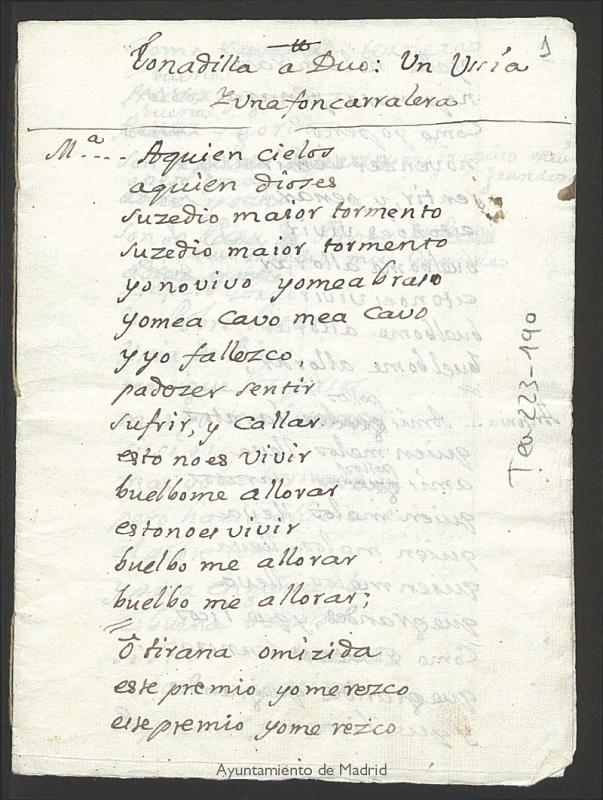 1
Tonadilla a Duo: Un Ussía
Y una foncarralera
Mª.... Aquien cielos
aquien dioses
suzedio maior tormento
suzedio maior tormento
yonovivo yomeabraso
yomea Cavo mea Cavo
y yo fallezco,
padezer sentir
sufrir, y Callar
esto no es vivir
buelbome allorar
estonoes vivir
buelbo me allorar
buelbo me allorar;
ô tirana omizida
este premio yomerezco
este premio yome rezco
Tea 223-190
Ayuntamiento de Madrid